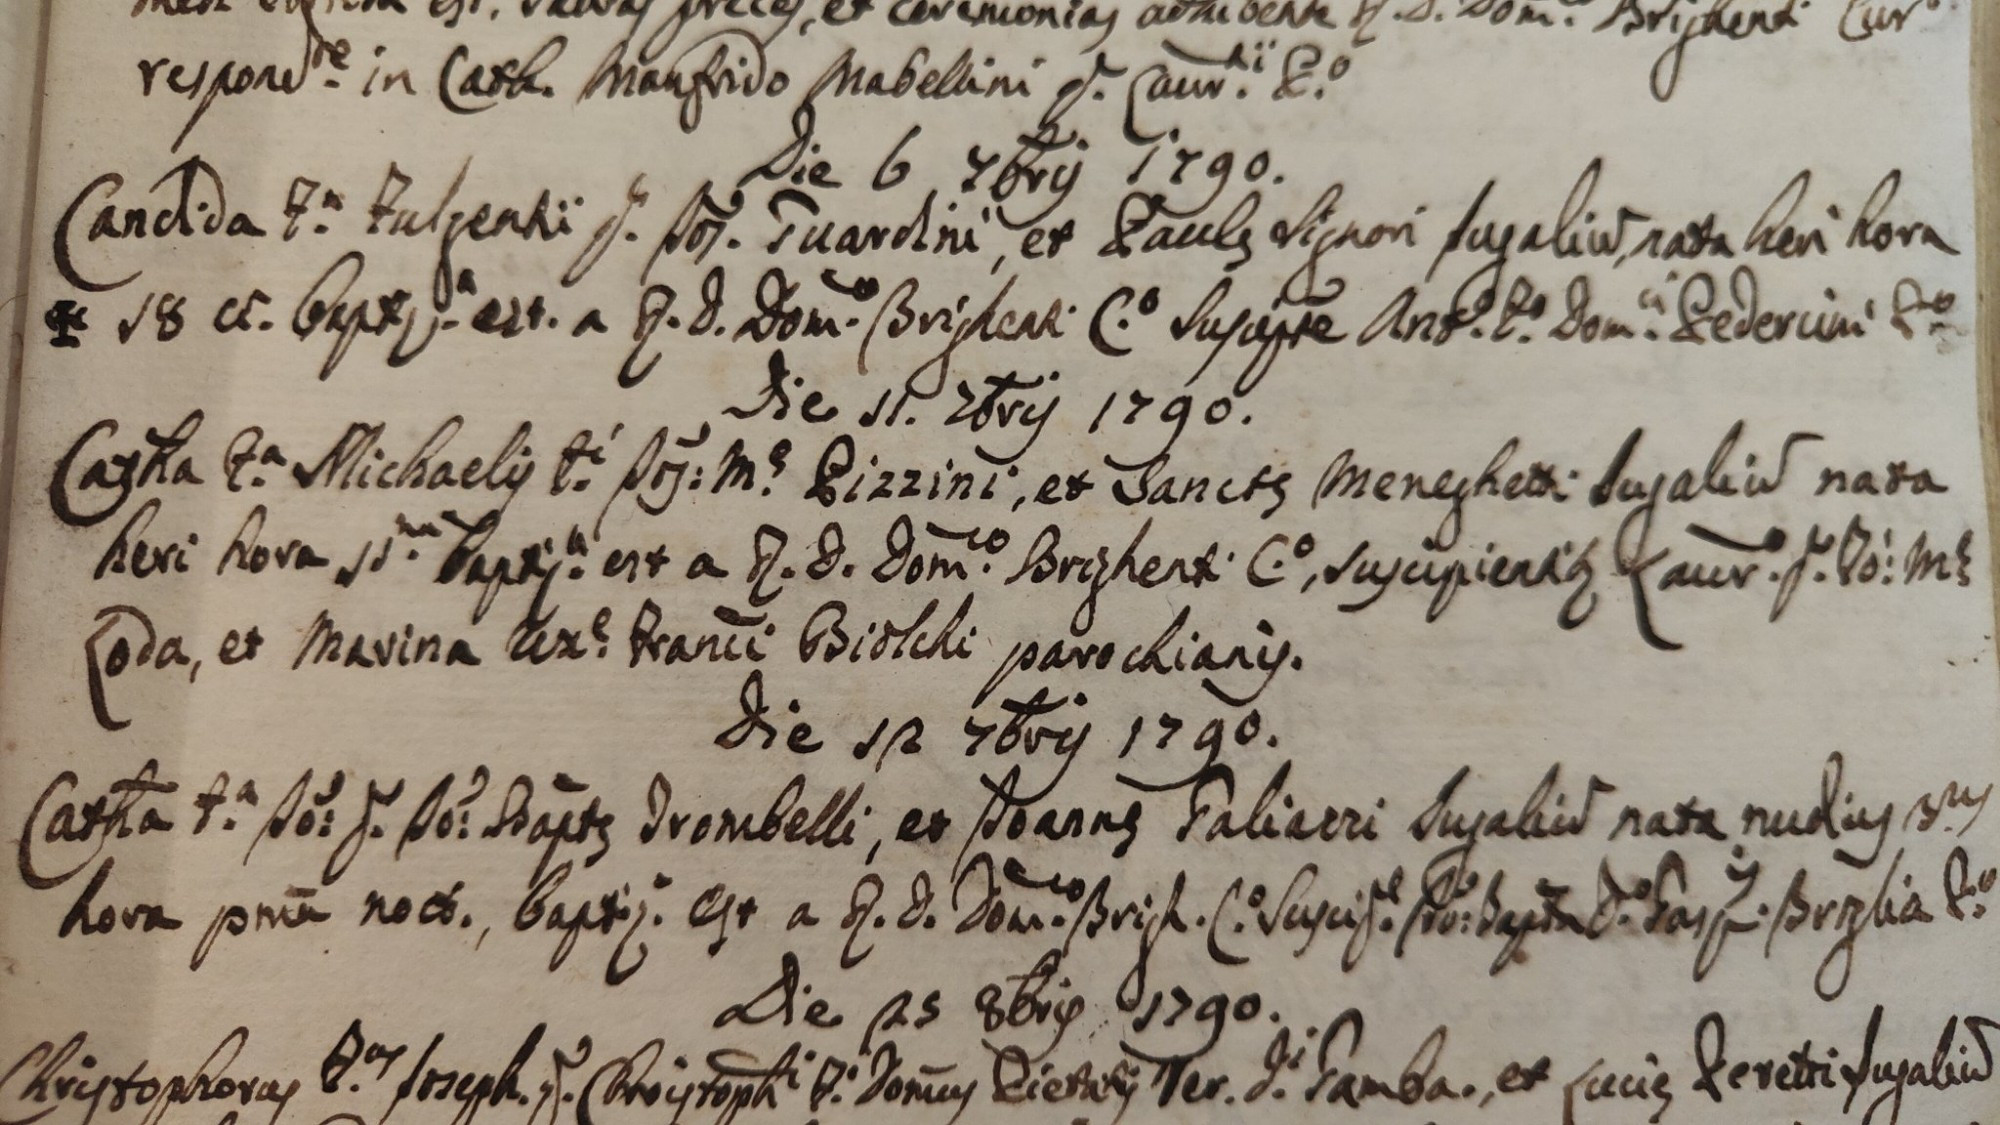 est, sacras preces, et ceremonias adhibente R. D. Dom.co Brighent. Cur.
respond.te in Cath. Manfrido Mabellini q. Laur.tii P.o
Die 6 7bris 1790.
Candida F.a Fulgentii q. Jos. Guardini, et Paulę Signori jugaliu, nata heri hora
18 c. baptiz.a est. a R. D. Dom.co Brighent. C.o suscipte Ant.o F.o Dom.ci Pedercini P.o
Die 11. 7bris 1790.
Cattha F.a Michaelis F.i Jos: M.e Pizzini, et Sanctę Meneghetti jugaliu nata
heri hora 11.ma baptiz.a est a R. D. Dom.co Brighent. C.o, suscipientib9 Laur.o q. Jo: M.ę
Loda, et Marina Ux.e Franci Biolchi parochianis.
Die 12 7bris 1790.
Cattha F.a Jo: q. Jo: Baptę Trombelli, et Joannę Galiazzi jugaliu nata nudius 3us
hora pma noct., baptiz. est a R. D. Dom.co Brigh. C.o suscip.e Jo: Bapta Brizhia P.o
Die 25 8bris 1790.
Christophorus F.us Joseph. q. Christophi F.i Domus Pietatis Ter. d.i Gamba., et Lucię Peretti jugaliu